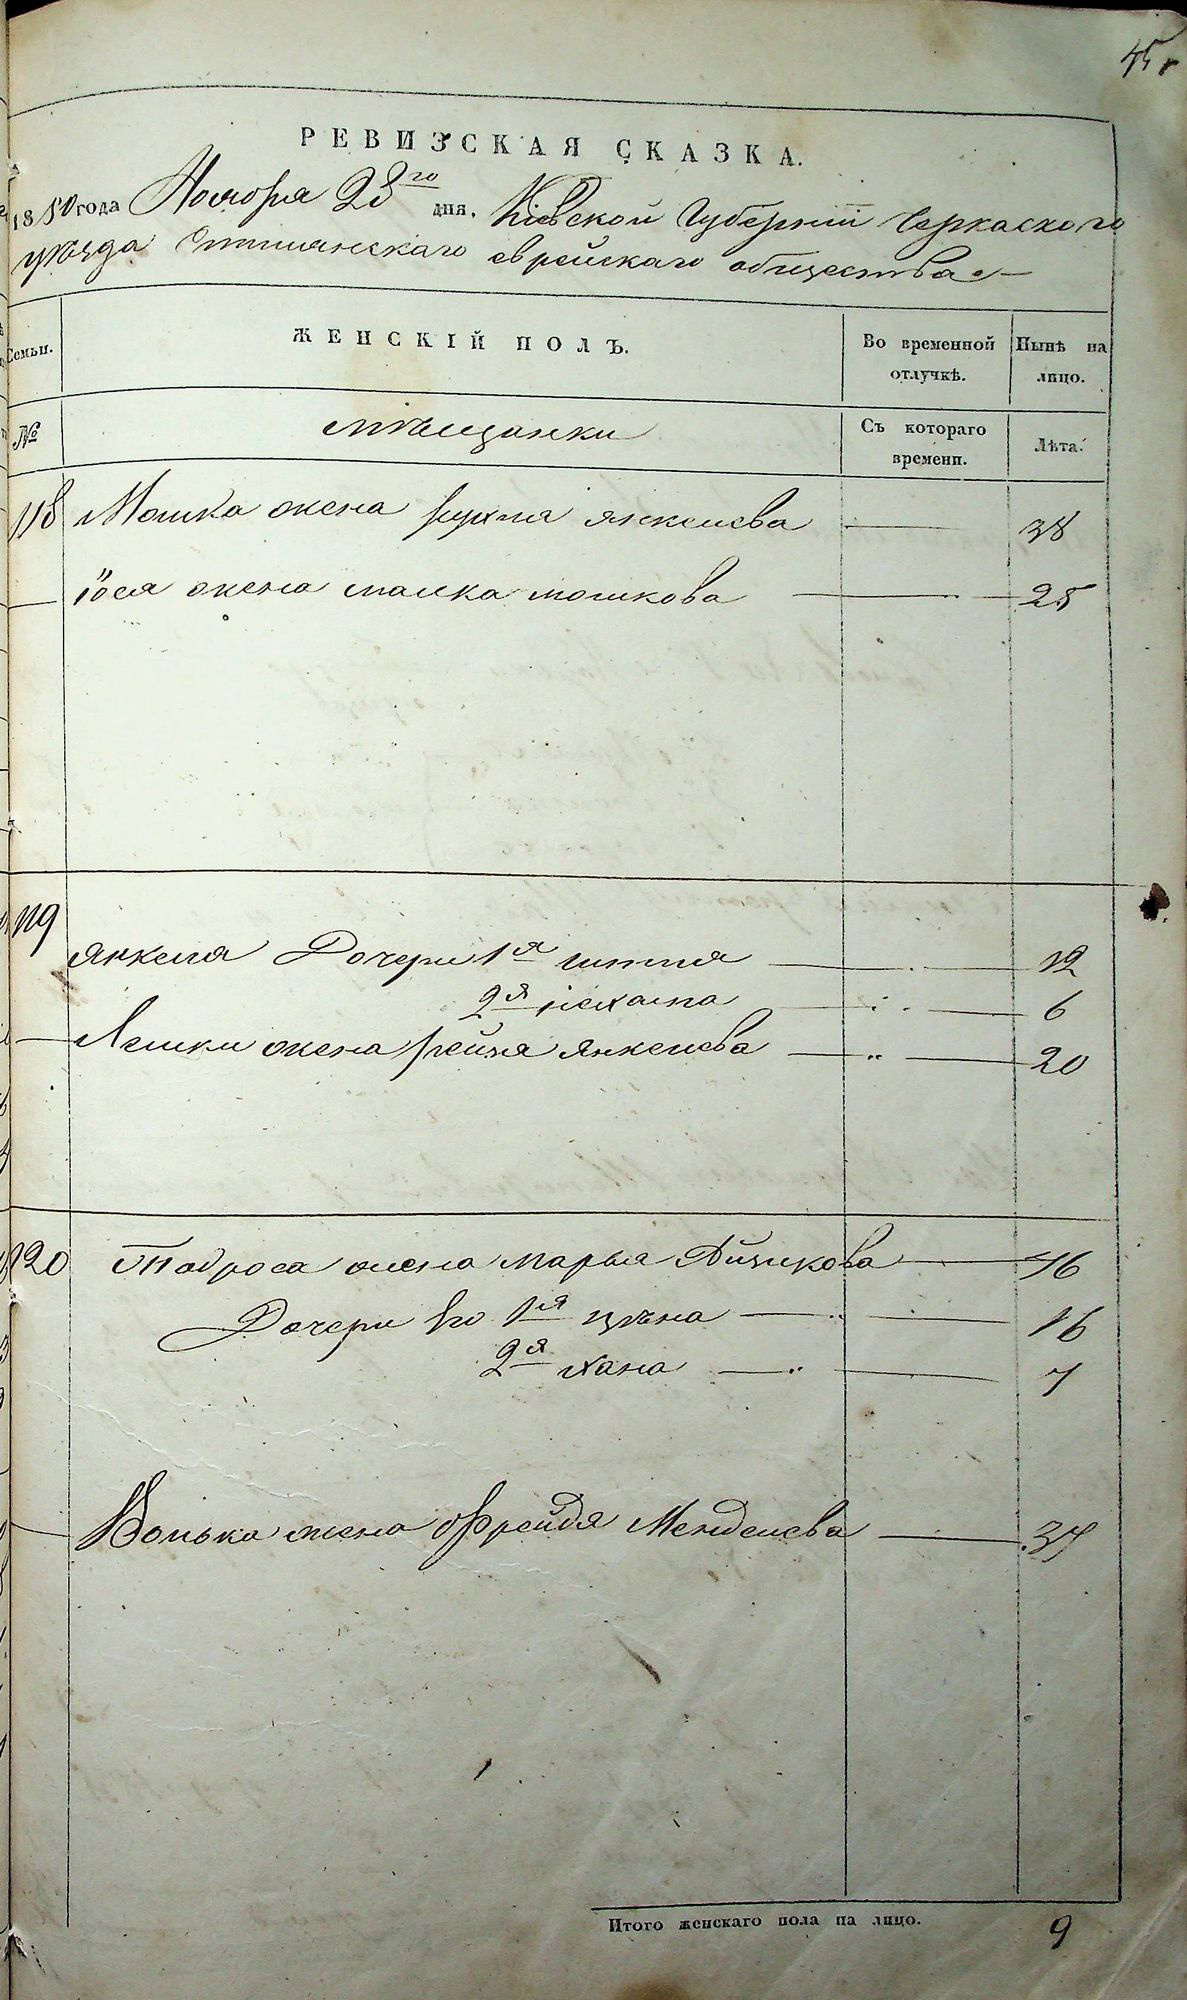 45
РЕВИЗСКАЯ СКАЗКА.
1850 года Ноября 23го дня. Кіевской Губерніи Черкаского
уѣзда еврейскаго общества
Семьи.
ЖЕНСКІЙ ПОЛЪ.
Во временной отлучкѣ.
Нынѣ на лицо.
№
мѣщанки
Съ котораго времени.
Лѣта.
118 Мошка жена Рухля Янкелева 38
Іося жена Малка Мошкова 25
119
Янкеля Дочери 1я Гитля 12
2я Нехама 6
Лейки жена Рейзя Янкелева 20
120 Тодроса жена Марья Айзикова 46
Дочери его 1я Цѣна 16
2я Хана 7
Волька жена Фрейдя Менделева 37
Итого женскаго пола на лицо. 9